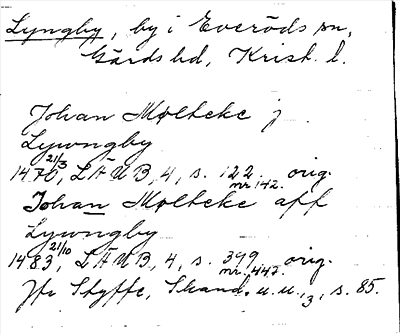 Lyngby, by i Everöds sn,
Gärds hd, Krist. l.
Johan Mølteke j
Lywngby
1470 21/3, LÄUB, 4, s. 122. orig.
nr 142.
Johan Mølteke aff
Lywngby
1483 21/10, LÄUB, 4, s. 349 orig.
nr. 442.
Jfr Styffe, Skand. u. u., 3, s. 85.